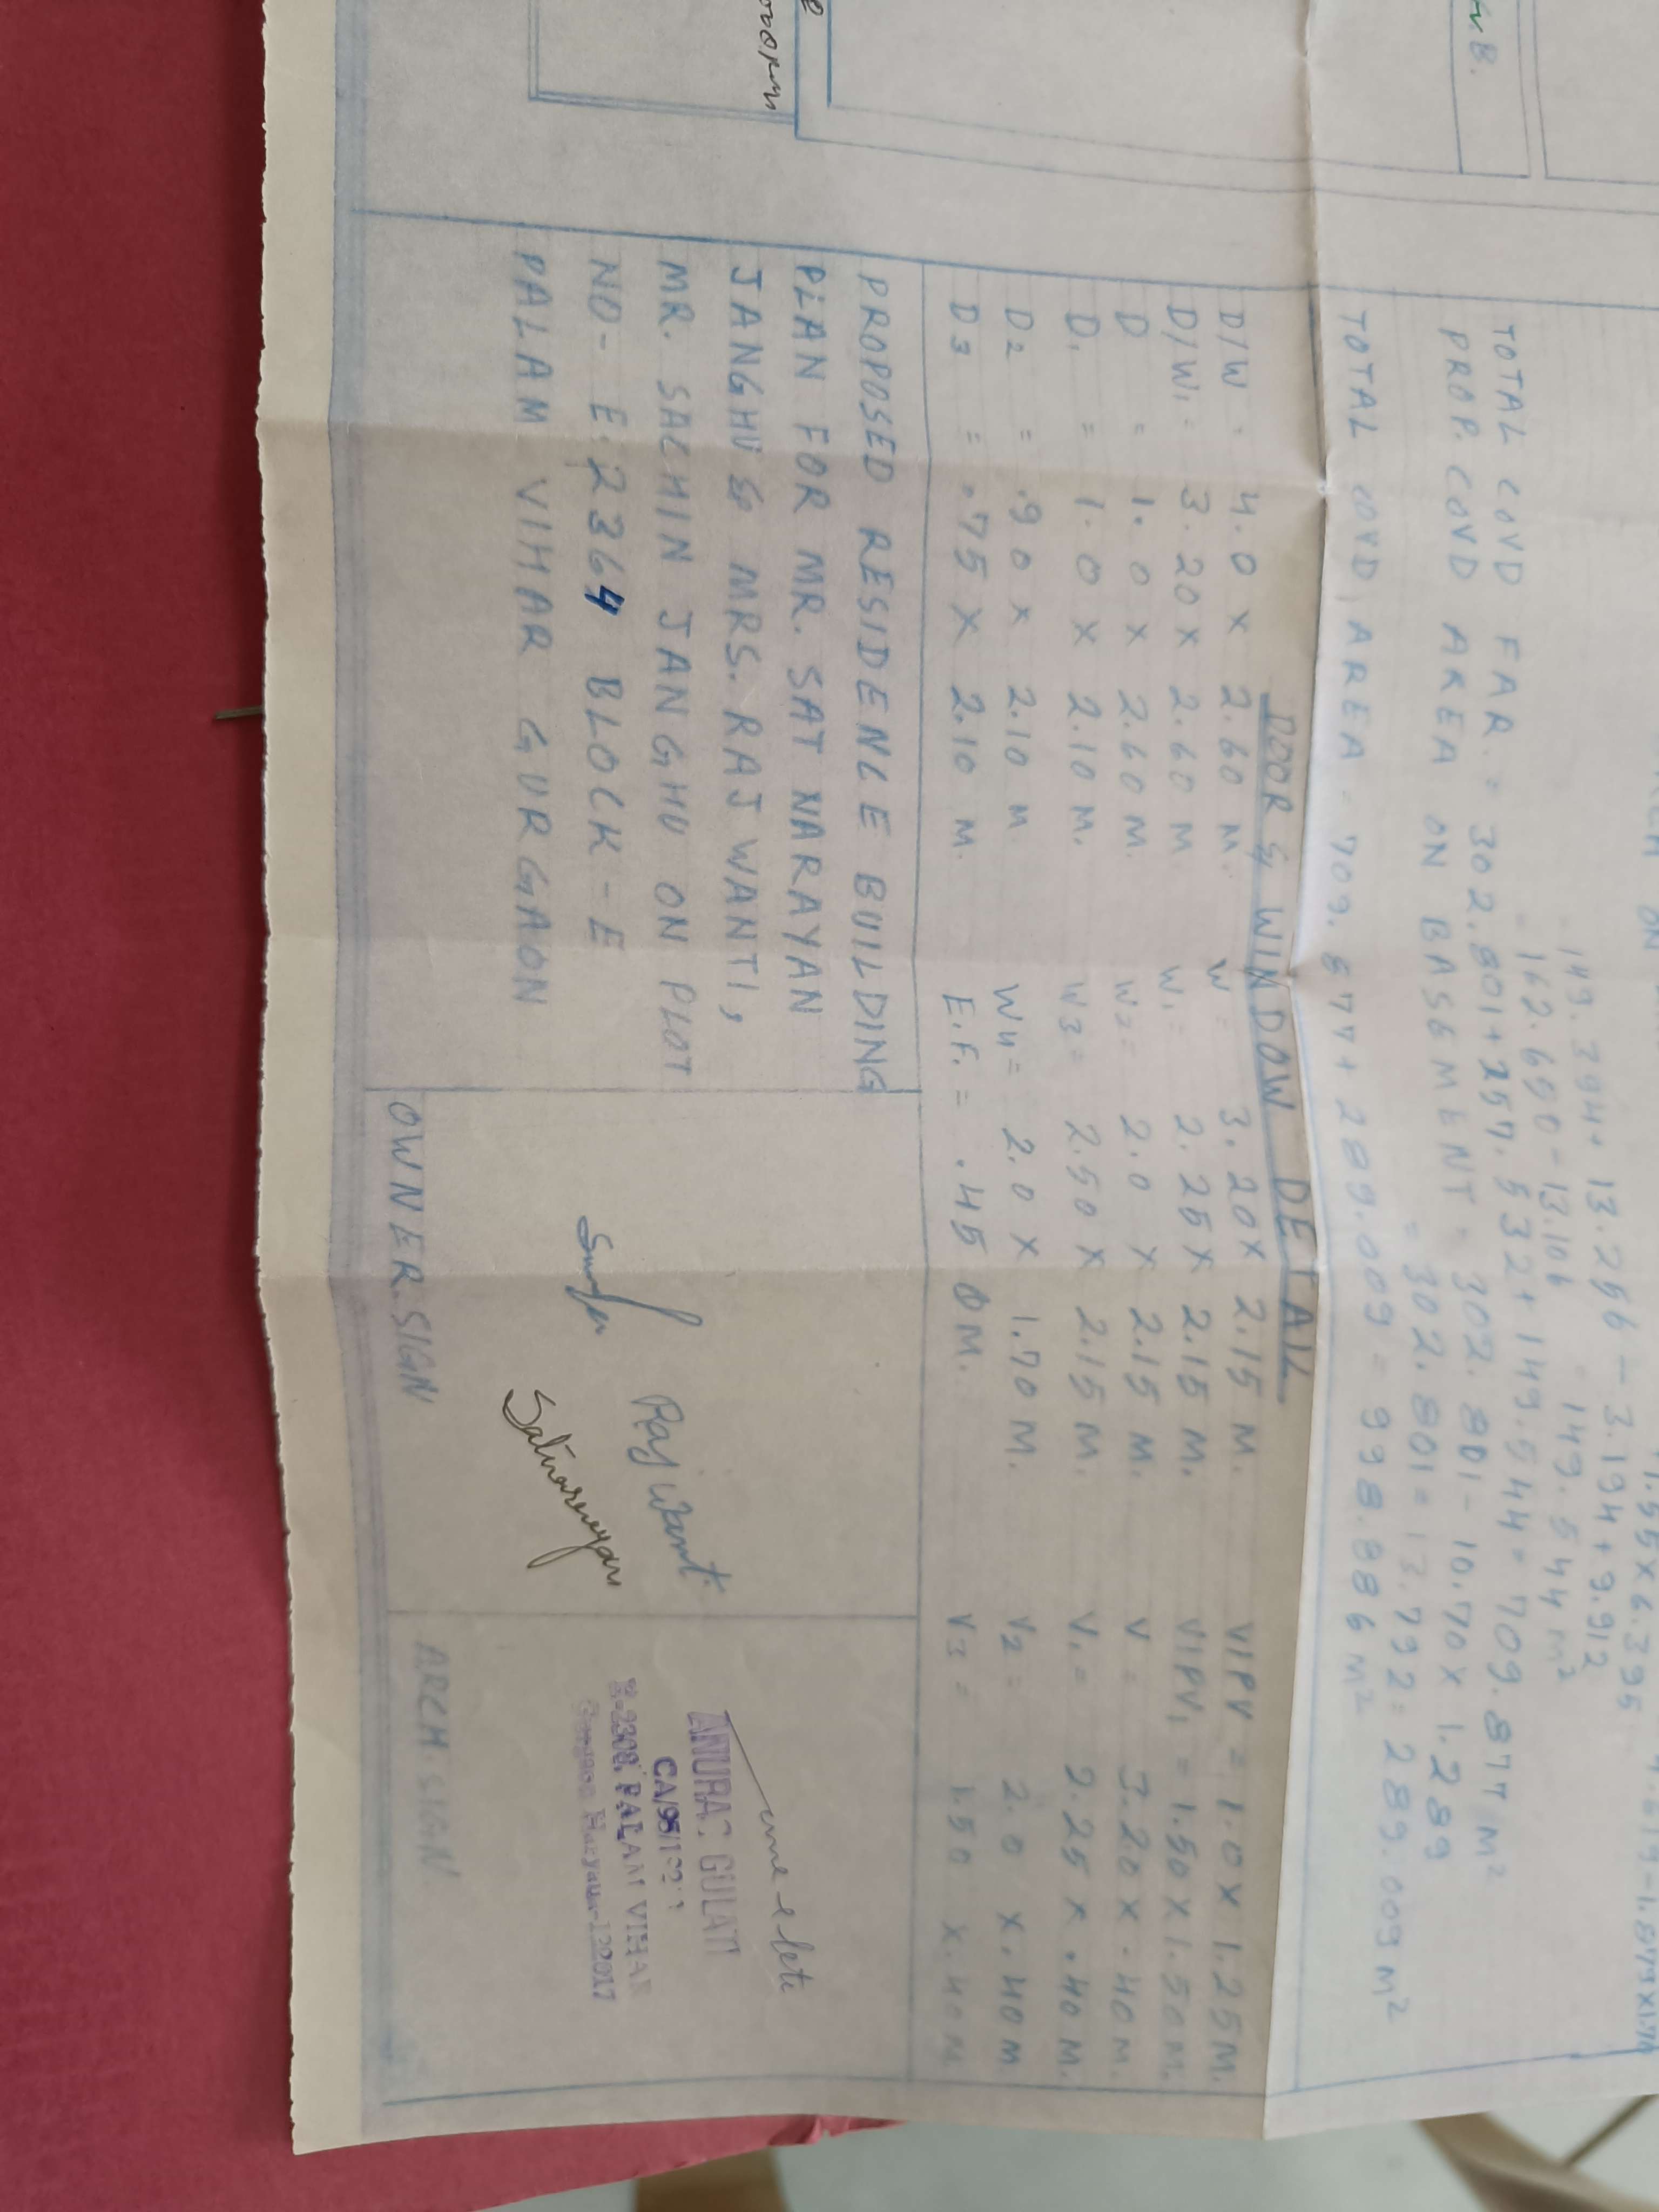 N B.
ARCH ON
1.55 X 6.395
149.294 + 13.256 - 3.194 + 9.912
162.650 - 13.106 = 149.544 m²
TOTAL COVD FAR = 302.801 + 257.532 + 149.544 = 709.877 m²
PROP. COVD AREA ON BASEMENT = 302.801 - 10.70 X 1.289
= 302.801 = 13.792 = 289.009 m²
TOTAL COVD, AREA - 709.877 + 289.009 = 998.886 m²
DOOR & WINDOW DETAIL
D/W = 4.0 X 2.60 M. W = 3.20 X 2.15 M. VIPV = 1.0 X 1.25 M.
D/W1 = 3.20 X 2.60 M W1 = 2.25 X 2.15 M. VIPV1 = 1.50 X 1.50 M.
D = 1.0 X 2.60 M. W2 = 2.0 X 2.15 M. V = 3.20 X .40 M.
D1 = 1.0 X 2.10 M. W3 = 2.50 X 2.15 M. V1 = 2.25 X .40 M.
D2 = .90 X 2.10 M W4 = 2.0 X 1.70 M. V2 = 2.0 X .40 M
D3 = .75 X 2.10 M. E.F. = .45 Ø M. V3 = 1.50 X .40 M
PROPOSED RESIDENCE BUILDING
PLAN FOR MR. SAT NARAYAN
JANGHU & MRS. RAJ WANTI,
MR. SACHIN JANGHU ON PLOT
NO- E-2364 BLOCK-E
PALAM VIHAR GURGAON
Raj Wanti
Satnarayan
OWNER.SIGN
ANURAG GULATI
CA/95/
E-2308, PALAM VIHAR
Haryana-122017
ARCH.SIGN